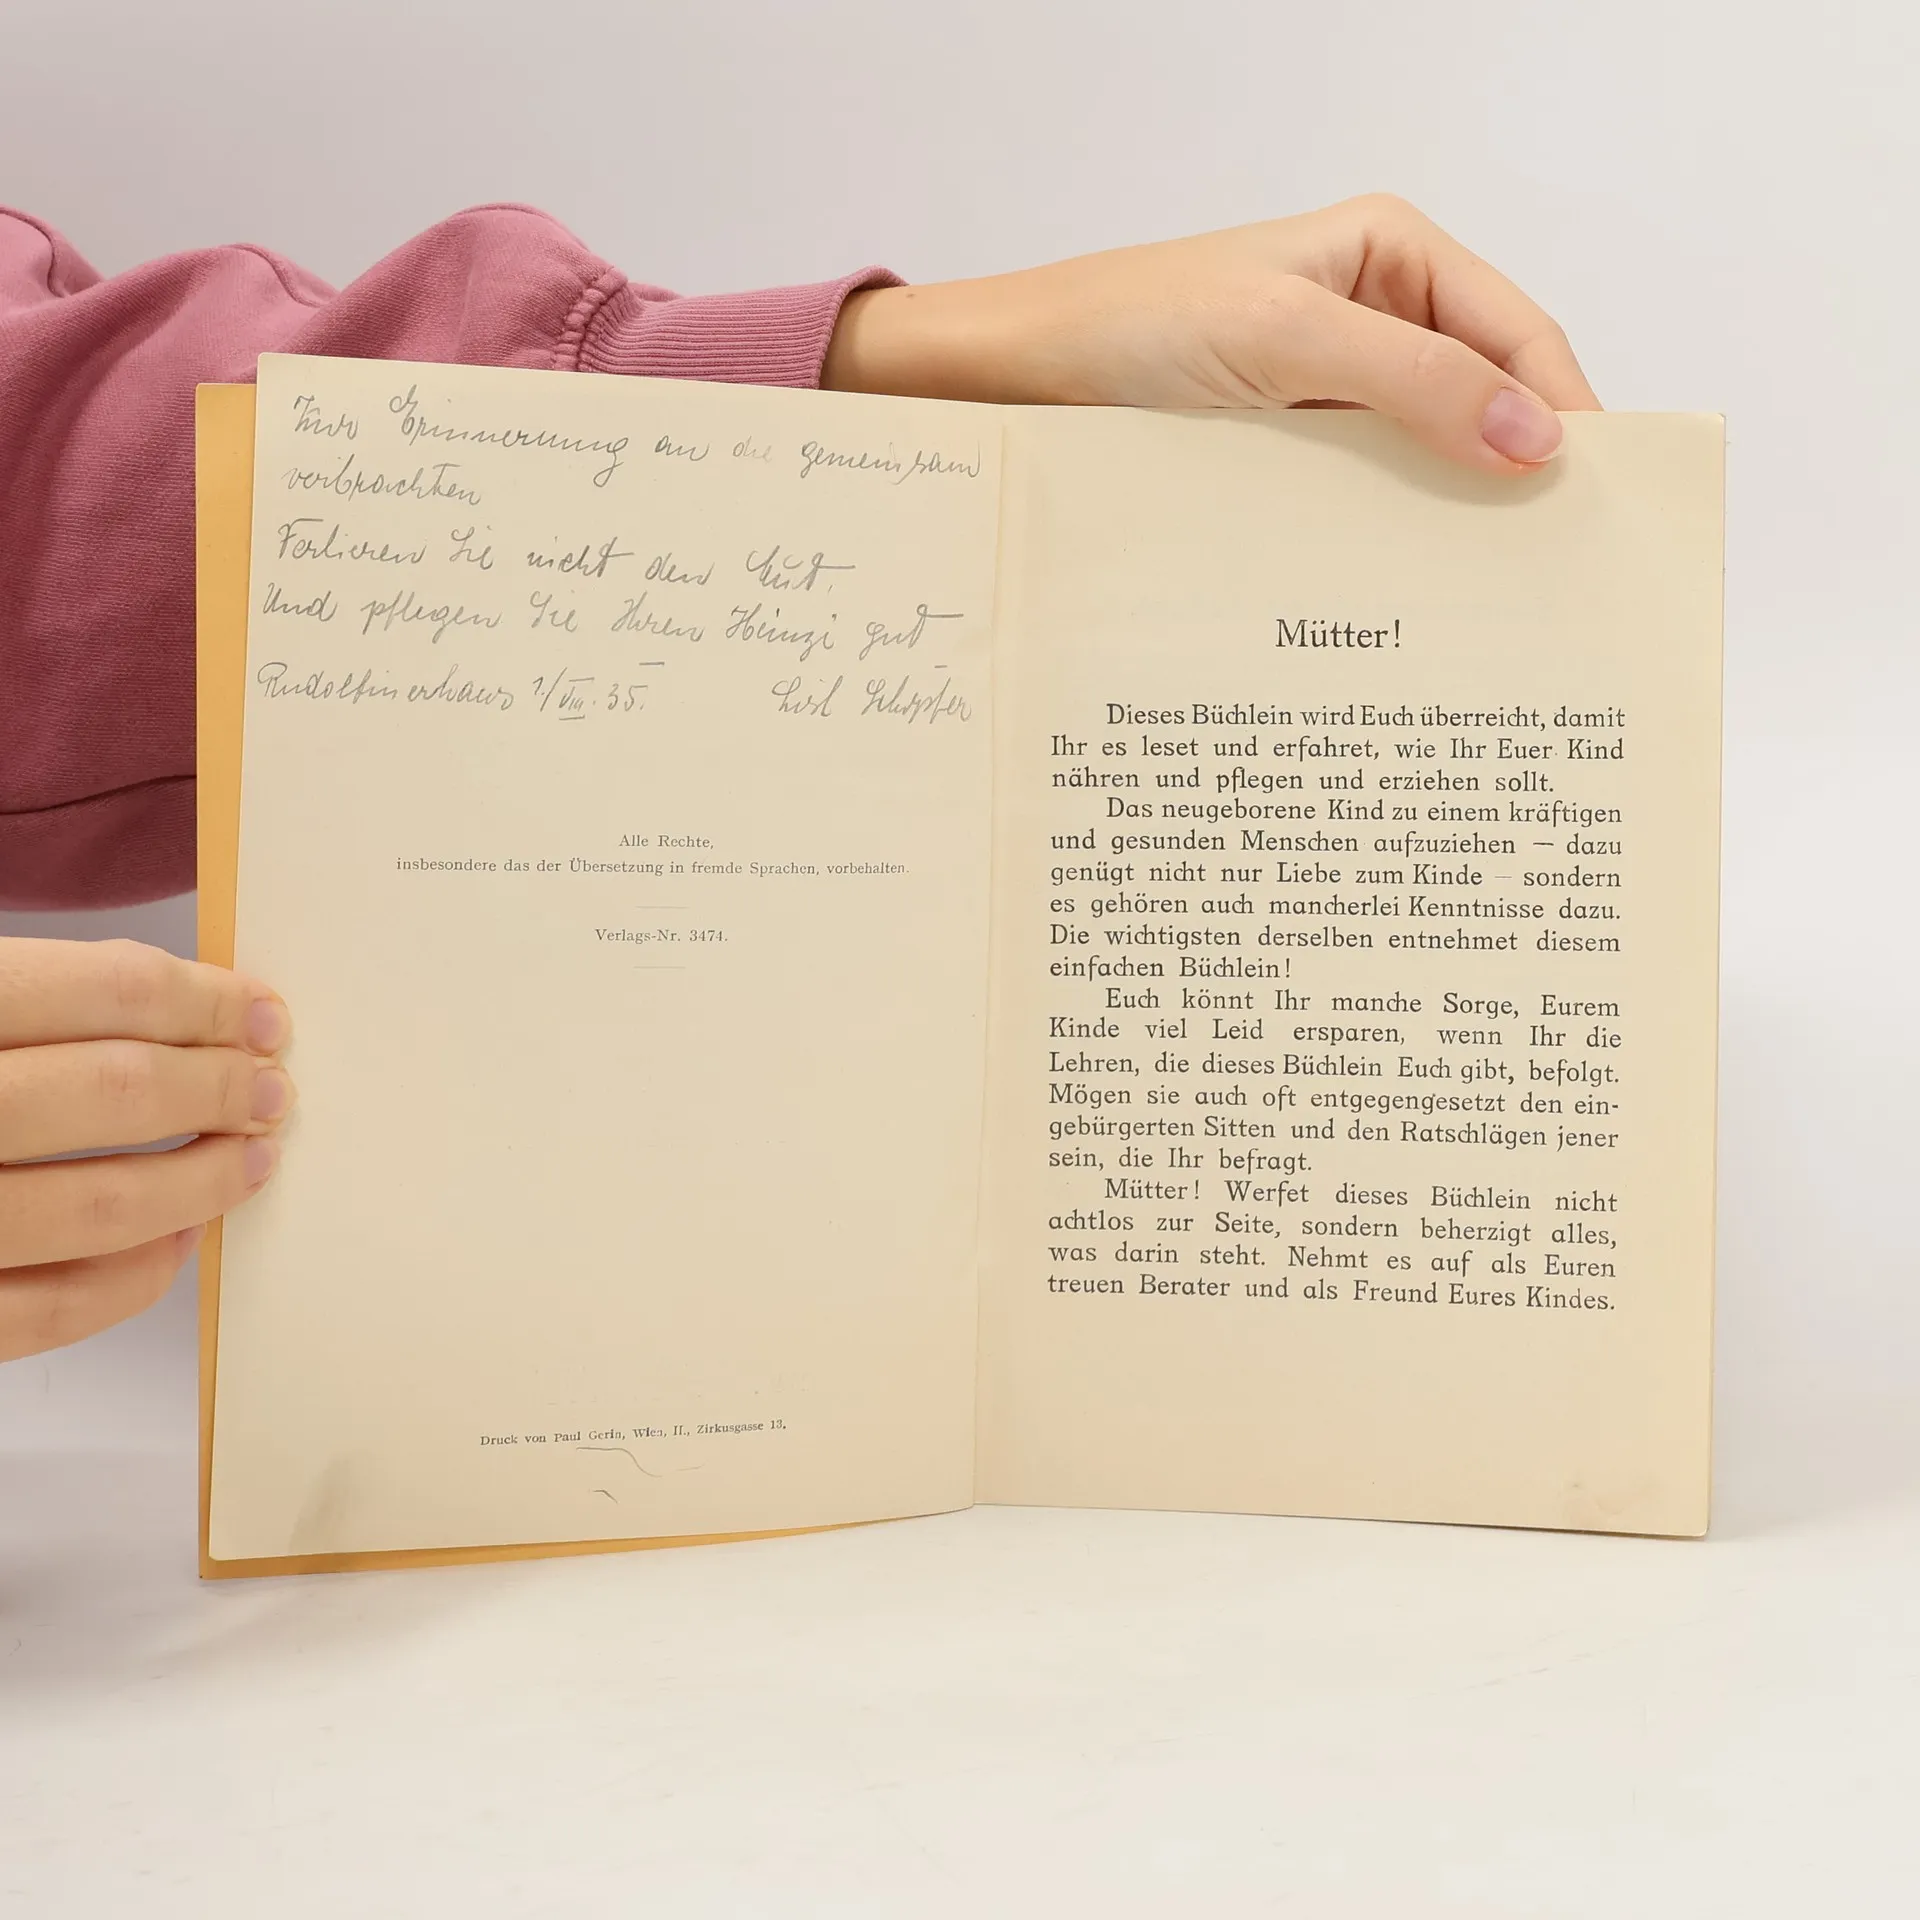 Zur Erinnerung an die gemeinsam
verbrachten
Verlieren Sie nicht den Mut.
Und pflegen Sie Ihren Heinzi gut
Rudolfinerhaus 1./VIII. 35. Lisl
Alle Rechte,
insbesondere das der Übersetzung in fremde Sprachen, vorbehalten.
Verlags-Nr. 3474.
Druck von Paul Gerin, Wien, II., Zirkusgasse 13.
Mütter!
Dieses Büchlein wird Euch überreicht, damit
Ihr es leset und erfahret, wie Ihr Euer Kind
nähren und pflegen und erziehen sollt.
Das neugeborene Kind zu einem kräftigen
und gesunden Menschen aufzuziehen — dazu
genügt nicht nur Liebe zum Kinde — sondern
es gehören auch mancherlei Kenntnisse dazu.
Die wichtigsten derselben entnehmet diesem
einfachen Büchlein!
Euch könnt Ihr manche Sorge, Eurem
Kinde viel Leid ersparen, wenn Ihr die
Lehren, die dieses Büchlein Euch gibt, befolgt.
Mögen sie auch oft entgegengesetzt den ein-
gebürgerten Sitten und den Ratschlägen jener
sein, die Ihr befragt.
Mütter! Werfet dieses Büchlein nicht
achtlos zur Seite, sondern beherzigt alles,
was darin steht. Nehmt es auf als Euren
treuen Berater und als Freund Eures Kindes.